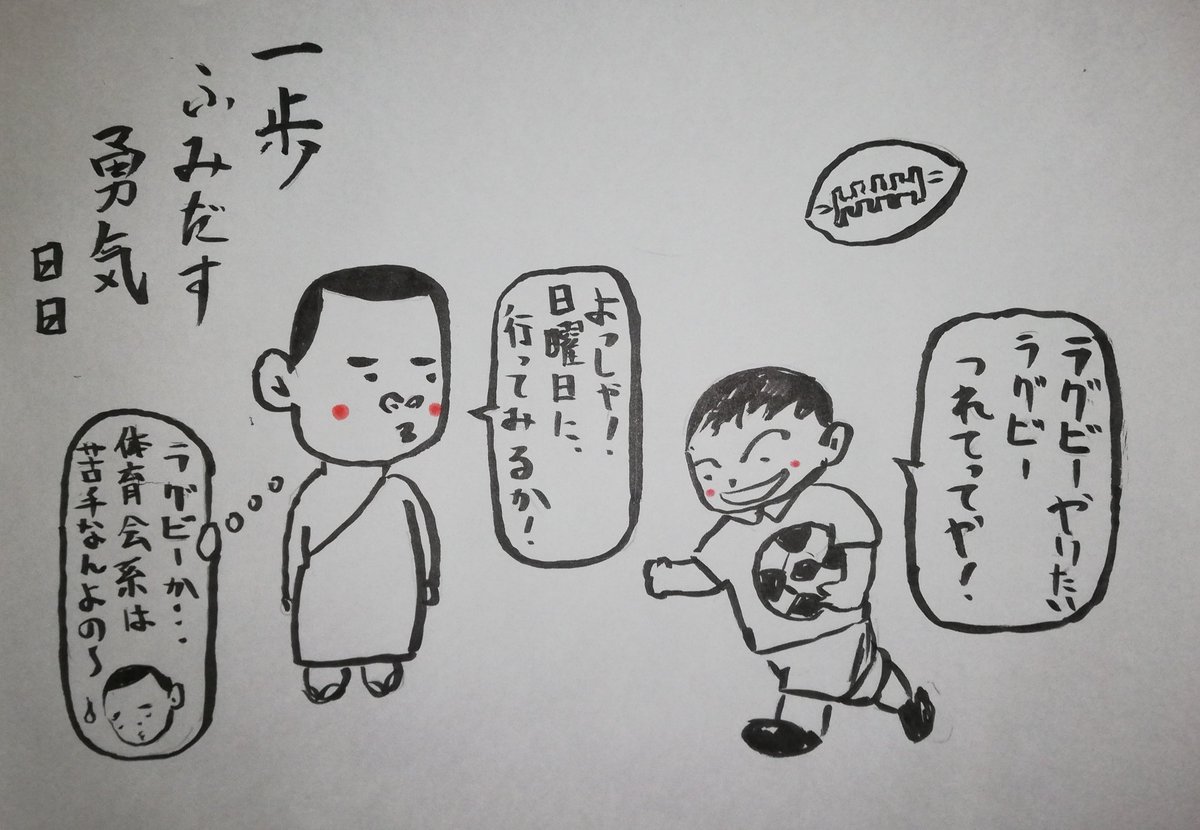 一歩
ふみだす
勇気
日日
ラグビーやりたい
ラグビー
つれてってや！
よっしゃ！
日曜日に、
行ってみるか！
ラグビーか・・・
体育会系は
苦手なんよの〜